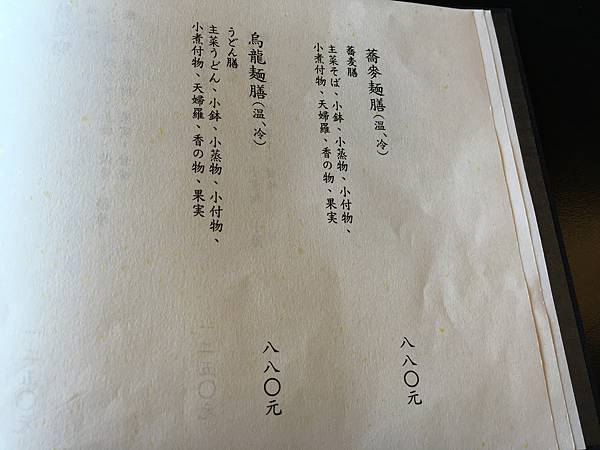 蕎麥麵膳(溫、冷)
蕎麦膳
主菜そば、小鉢、小蒸物、小付物、
小煮付物、天婦羅、香の物、果実
八八〇元
烏龍麵膳(溫、冷)
うどん膳
主菜うどん、小鉢、小蒸物、小付物、
小煮付物、天婦羅、香の物、果実
八八〇元